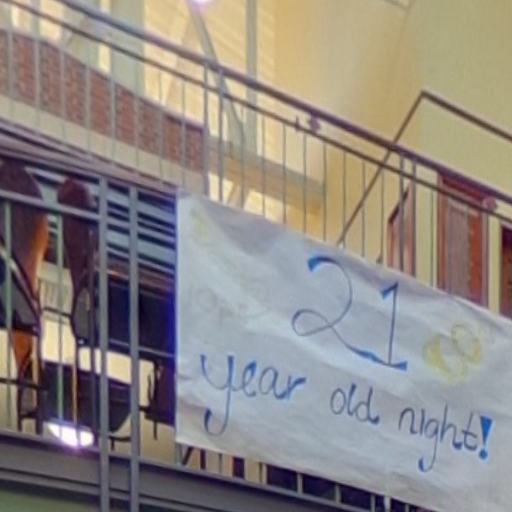 21
year old night!